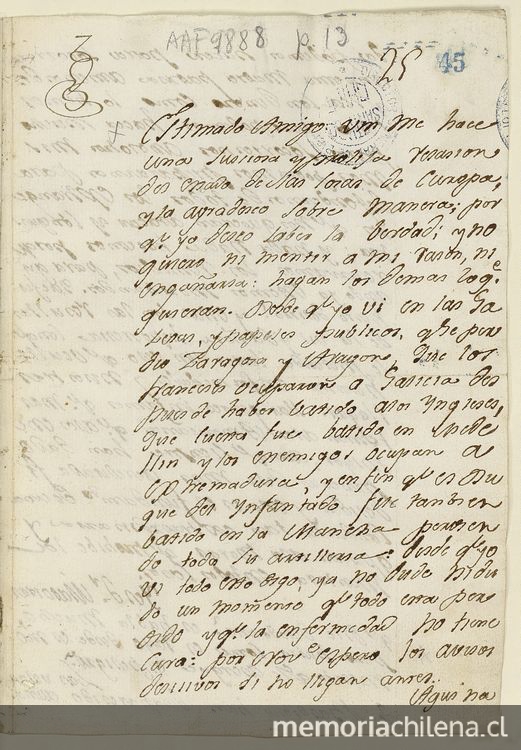 AAF9888 p. 13
25 45
Estimado Amigo: Vm me hace
una suscinta y prolija relacion
del estado de las cosas de Europa,
y la agradesco sobre manera; por
q.e yo deseo saber la verdad; y no
quiero ni mentir a mi rason, ni
engañarla: hagan los demas lo q.e
quieran. Desde q.e yo vi en las Ga
setas, y papeles publicos, q.e se per
dio Zaragosa y Aragon, que los
franceses ocuparon a Galicia des
pues de haber batido a los Yngleses,
que Cuesta fue batido en Mede
llin y los enemigos ocupan a
Extremadura, y en fin q.e el Du
que del Ynfantado fue tambien
batido en la Mancha perdien
do toda su artilleria: desde q.e yo
vi todo esto digo, ya no dudo ni du
do un momento q.e todo esta per
dido y q.e la enfermedad no tiene
cura: por eso espero los avisos
desicivos si no llegan antes.
Aqui na
memoriachilena.cl